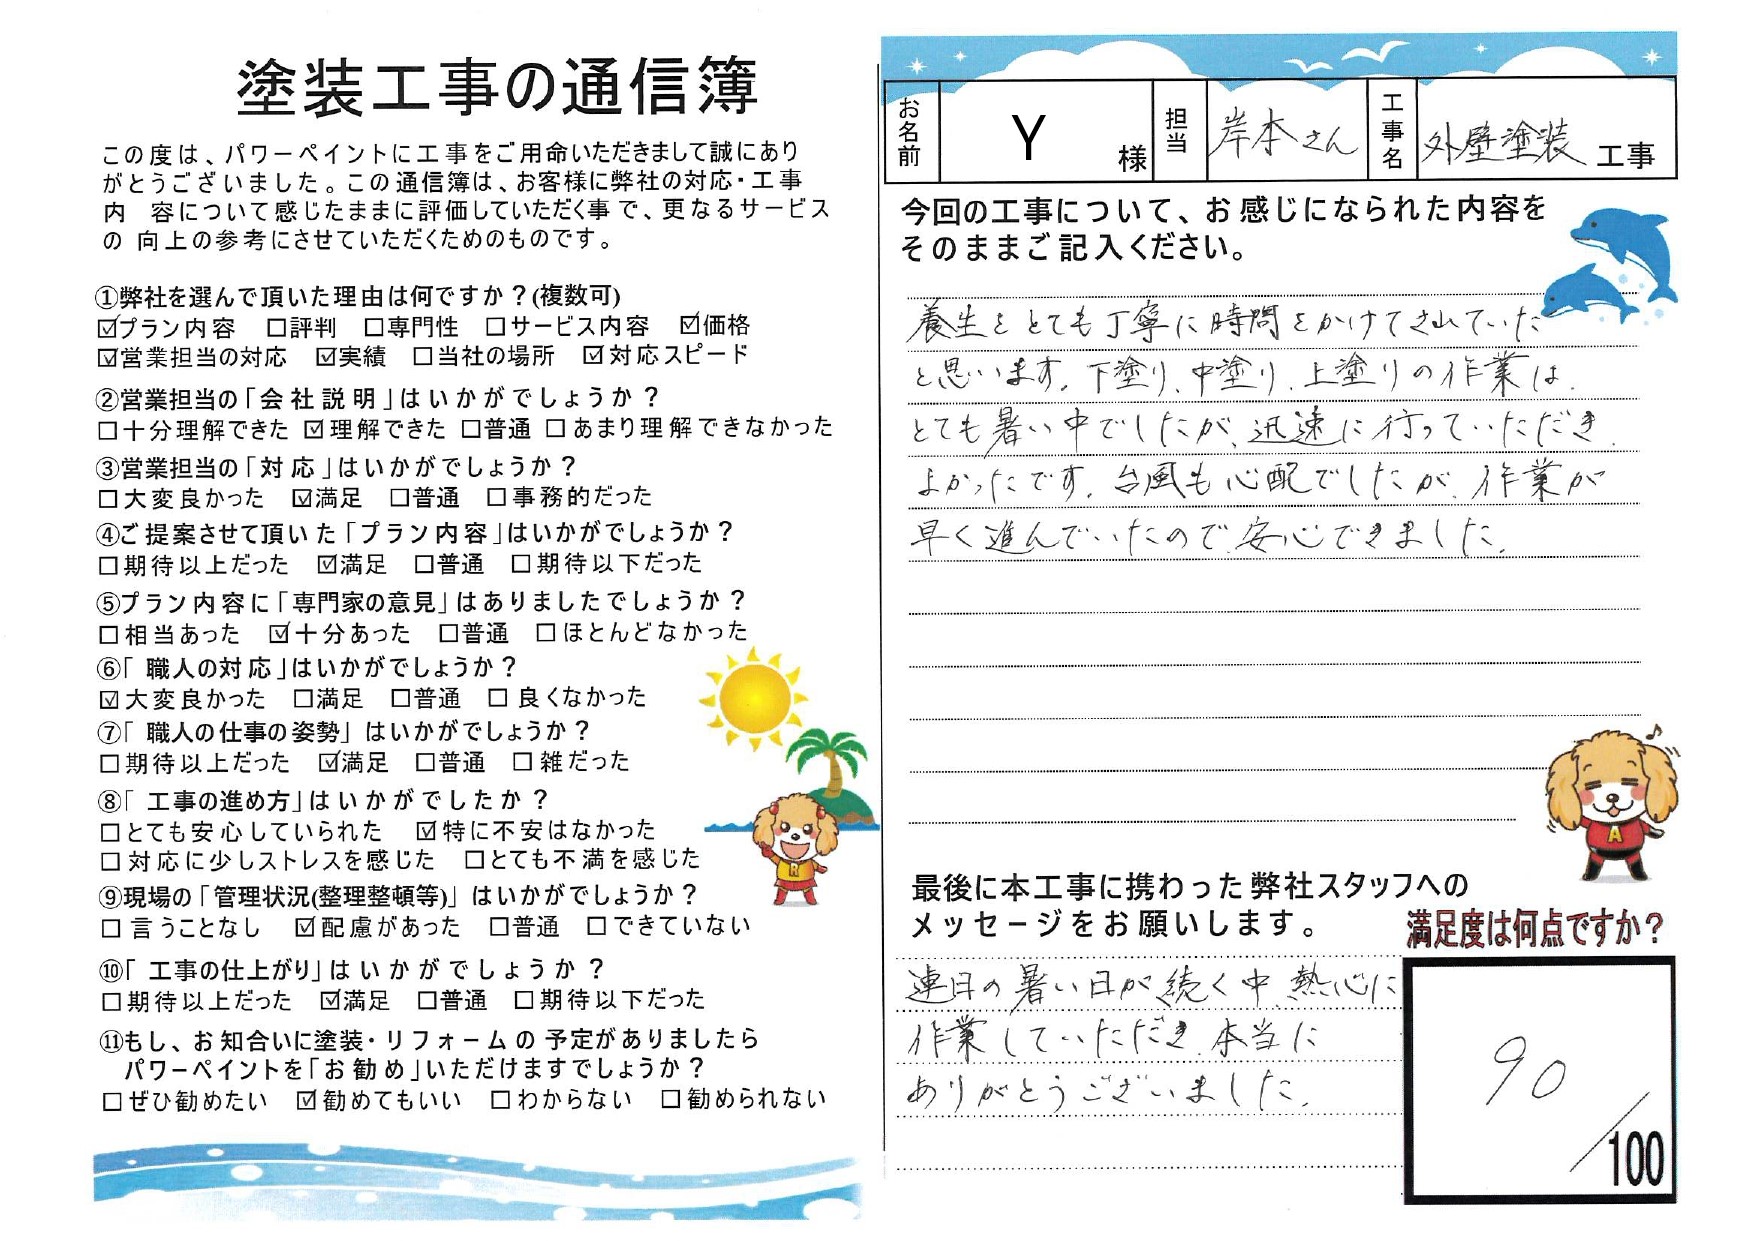 塗装工事の通信簿
この度は、パワーペイントに工事をご用命いただきまして誠にあり
がとうございました。この通信簿は、お客様に弊社の対応・工事
内　容について感じたままに評価していただく事で、更なるサービス
の 向上の参考にさせていただくためのものです。
①弊社を選んで頂いた理由は何ですか？(複数可)
☑プラン内容 □評判 □専門性 □サービス内容 ☑価格
☑営業担当の対応 ☑実績 □当社の場所 ☑対応スピード
②営業担当の「会社説明」はいかがでしょうか？
□十分理解できた ☑理解できた □普通 □あまり理解できなかった
③営業担当の「対応」はいかがでしょうか？
□大変良かった ☑満足 □普通 □事務的だった
④ご提案させて頂いた「プラン内容」はいかがでしょうか？
□期待以上だった ☑満足 □普通 □期待以下だった
⑤プラン内容に「専門家の意見」はありましたでしょうか？
□相当あった ☑十分あった □普通 □ほとんどなかった
⑥「職人の対応」はいかがでしょうか？
☑大変良かった □満足 □普通 □良くなかった
⑦「職人の仕事の姿勢」はいかがでしょうか？
□期待以上だった ☑満足 □普通 □雑だった
⑧「工事の進め方」はいかがでしたか？
□とても安心していられた ☑特に不安はなかった
□対応に少しストレスを感じた □とても不満を感じた
⑨現場の「管理状況(整理整頓等)」はいかがでしょうか？
□言うことなし ☑配慮があった □普通 □できていない
⑩「工事の仕上がり」はいかがでしょうか？
□期待以上だった ☑満足 □普通 □期待以下だった
⑪もし、お知合いに塗装・リフォームの予定がありましたら
パワーペイントを「お勧め」いただけますでしょうか？
□ぜひ勧めたい ☑勧めてもいい □わからない □勧められない
お名前 Y 様 担当 岸本さん 工事名 外壁塗装 工事
今回の工事について、お感じになられた内容を
そのままご記入ください。
養生をとても丁寧に時間をかけてされていた
と思います。下塗り、中塗り、上塗りの作業は、
とても暑い中でしたが、迅速に行っていただき、
よかったです。台風も心配でしたが、作業が
早く進んでいたので、安心できました。
最後に本工事に携わった弊社スタッフへの
メッセージをお願いします。
満足度は何点ですか？
連日の暑い日が続く中、熱心に
作業していただき、本当に
ありがとうございました。
90
/100